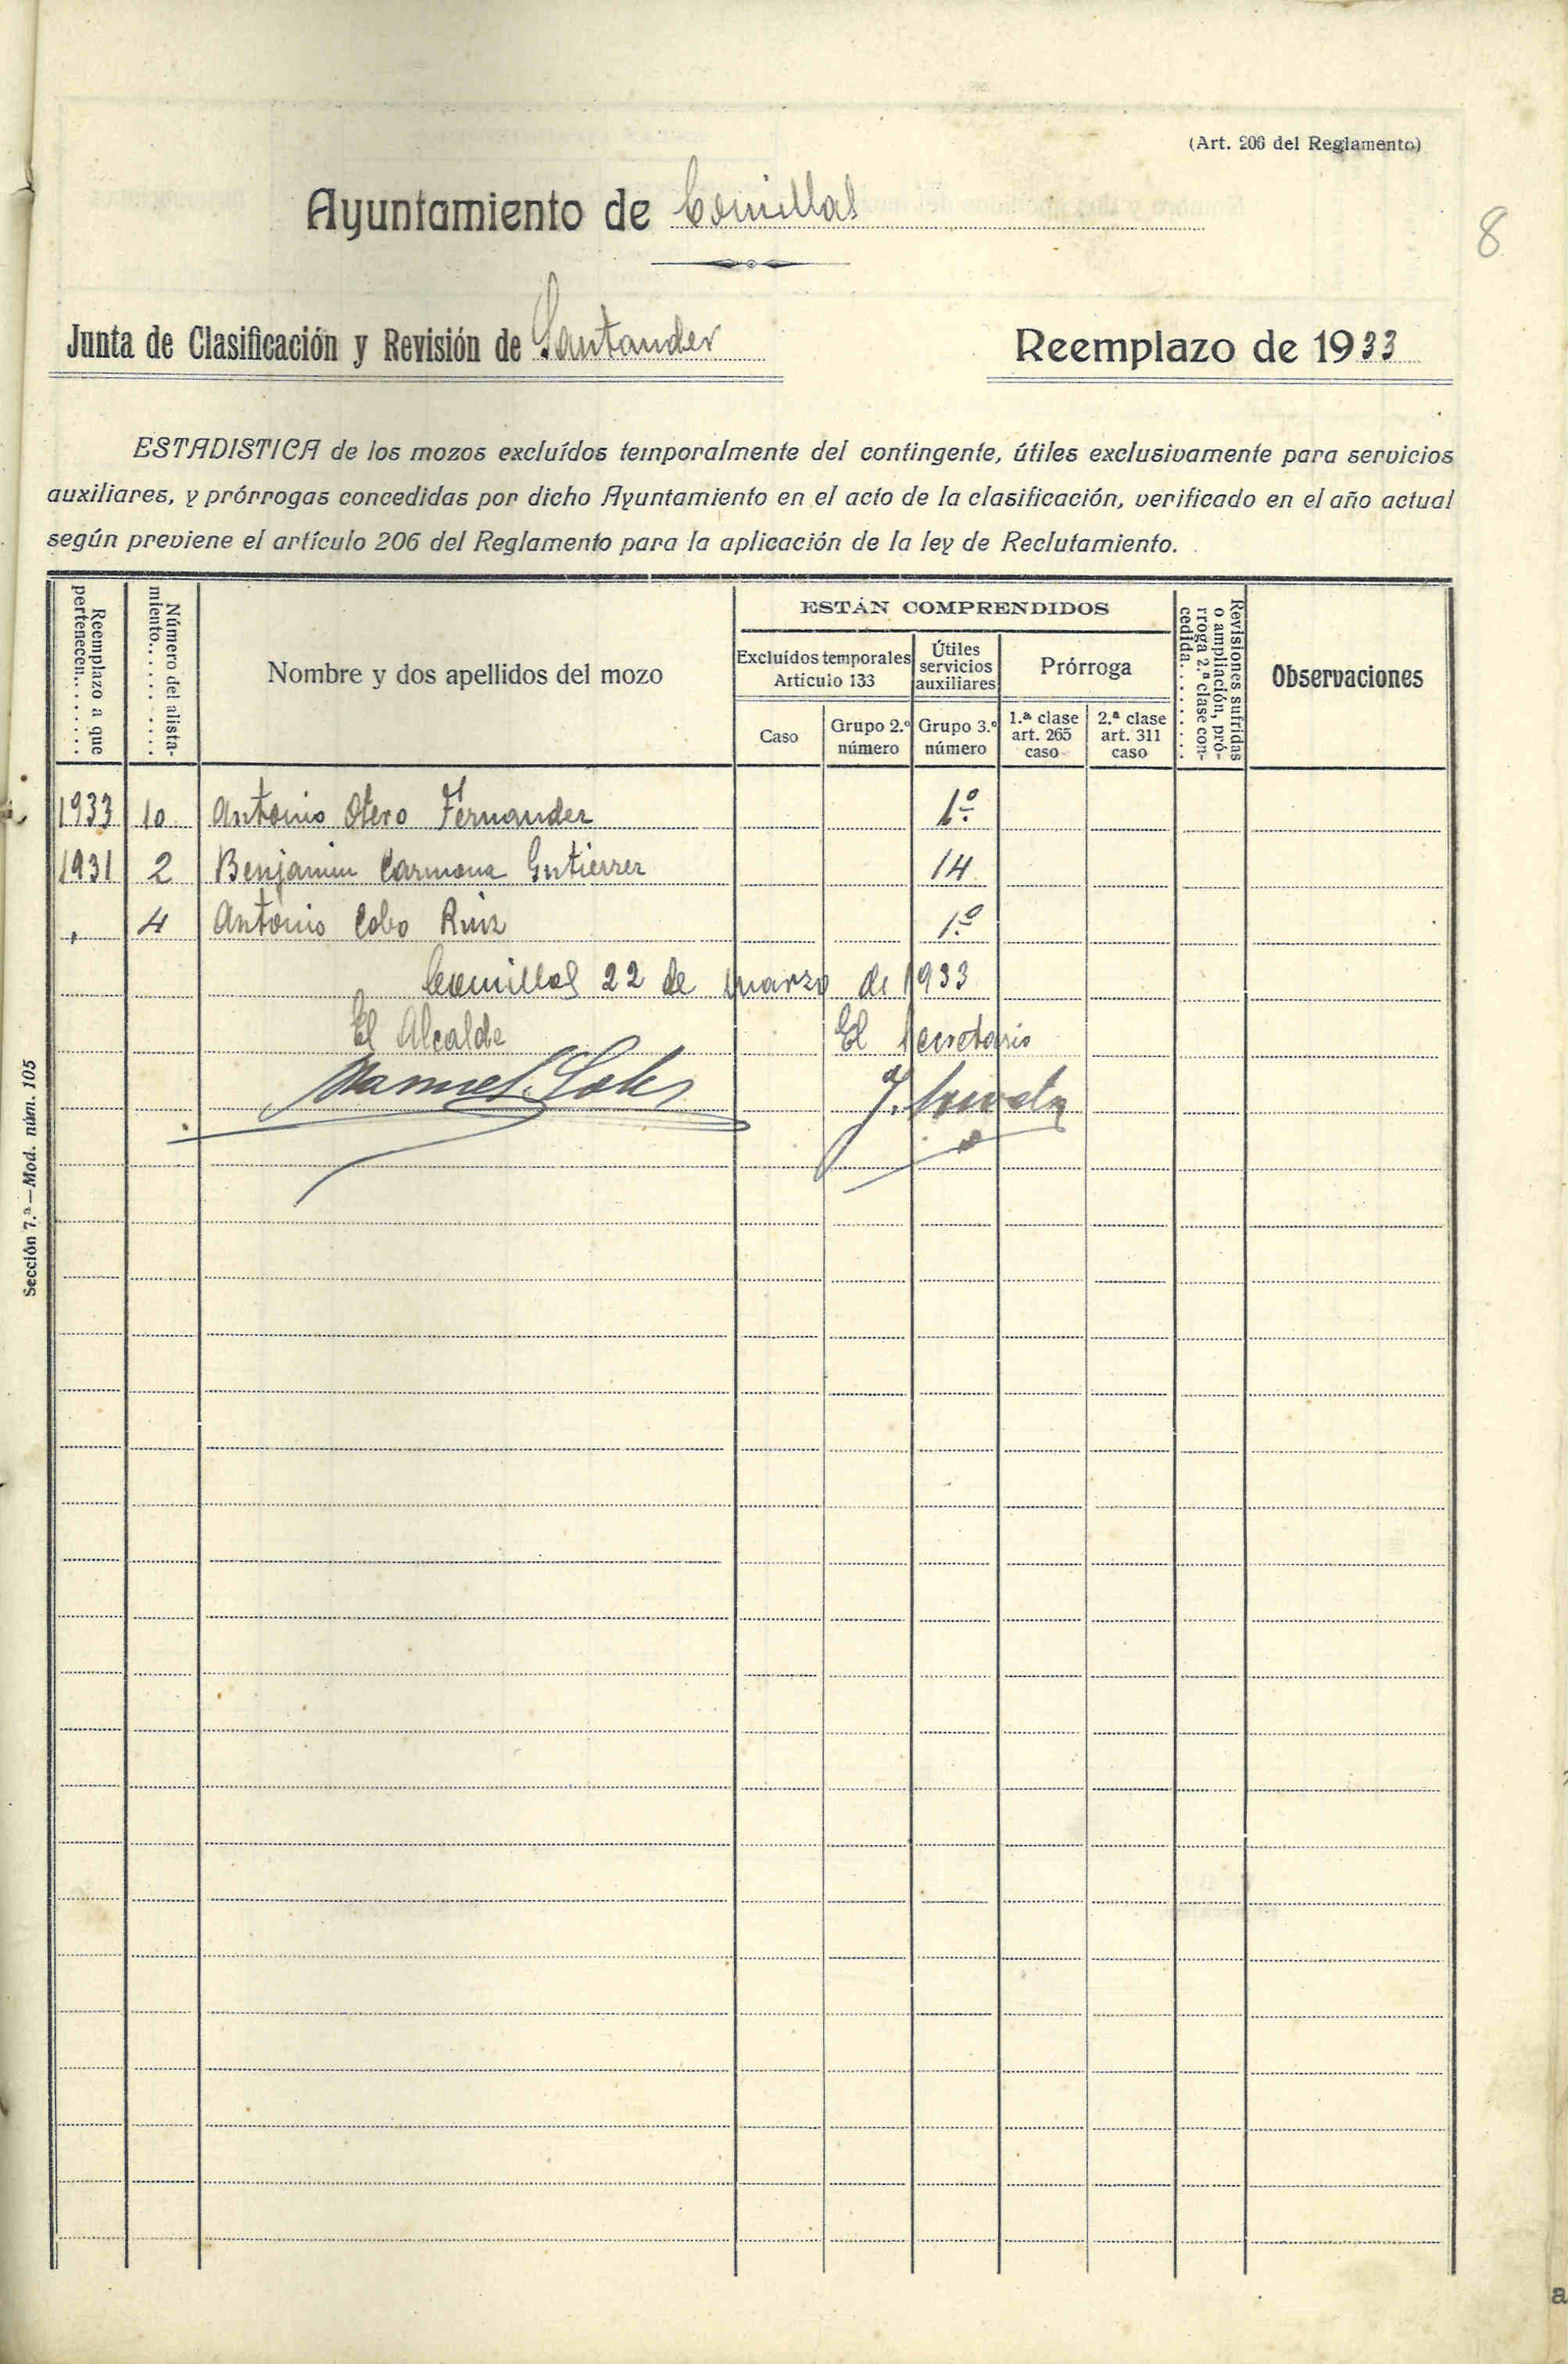 (Art. 206 del Reglamento)
Ayuntamiento de Comillas
8
Junta de Clasificación y Revisión de Santander
Reemplazo de 1933
ESTADISTICA de los mozos excluídos temporalmente del contingente, útiles exclusivamente para servicios
auxiliares, y prórrogas concedidas por dicho Ayuntamiento en el acto de la clasificación, verificado en el año actual
según previene el artículo 206 del Reglamento para la aplicación de la ley de Reclutamiento.
Reemplazo a que
pertenecen
Número del alista-
miento
Nombre y dos apellidos del mozo
ESTÁN COMPRENDIDOS
Excluídos temporales
Artículo 133
Caso
Grupo 2.º
número
Útiles
servicios
auxiliares
Grupo 3.º
número
Prórroga
1.ª clase
art. 265
caso
2.ª clase
art. 311
caso
Revisiones sufridas
o ampliación, pró-
rroga 2.ª clase con-
cedida
Observaciones
1933 10 Antonio Otero Fernandez 1º
1931 2 Benjamin Carmona Gutierrez 14
" 4 Antonio Cobo Ruiz 1º
Comillas 22 de Marzo de 1933
El Alcalde El Secretario
Manuel
Sección 7.ª—Mod. núm. 105